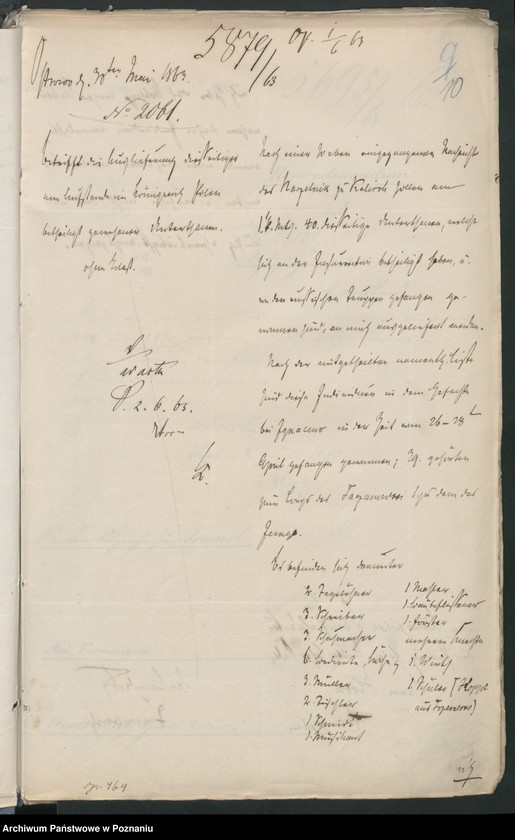 5879/63
op. 1/6 63
9
10
Ostrowo d. 30ten Mai 1863.
No 2061.
betrifft die Auslieferung diesseitiger
am Aufstande im Königreich Polen
betheiligt gewesener Unterthanen.
ohne
Nach einer soeben eingegangenen Nachricht
des Naczelnik zu Kalisch sollen am
1. k. Mts. 40. diesseitige Unterthanen, welche
sich an der Insurrection betheiligt haben, u.
von den russischen Truppen gefangen ge-
nommen sind, an mich ausgeliefert werden.
Nach der mitgetheilten namentl. Liste
sind diese Individuen in dem Gefechte
bei Ignacewo in der Zeit vom 26-28t
April gefangen genommen; 29. gehörten
zum Corps des Taczanowski dem des
Junge.
Es befinden sich darunter
2. Tagelöhner
3. Schreiber
3. Schuhmacher
6.
3. Müller
2. Tischler
1. Schmidt
1. Musikant
1. Maler
1.
1. Förster
mehrere Knechte
1. Wirth
1. Schüler (
aus
2. 6. 63.
op. 464
Archiwum Państwowe w Poznaniu